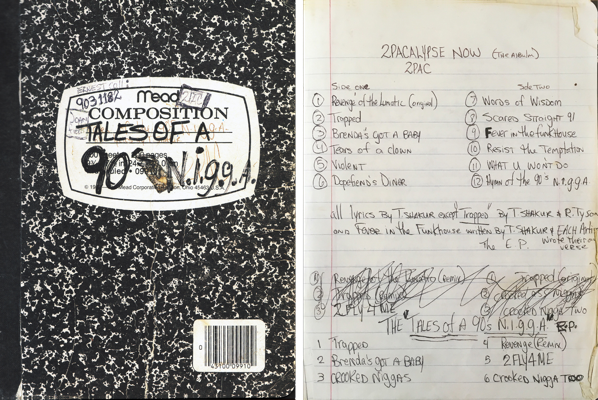 9031182
Mead
COMPOSITION
TALES OF A
90's N.i.g.g.A.
0
43100"09910
2PACALYPSE NOW (THE ALBUM)
2PAC
Side one
1 Revenge of the Lunatic (original)
2 Trapped
3 Brenda's got A BABY
4 Tears of a clown
5 Violent
6 Dopefiend's Diner
Side Two
7 Words of Wisdom
8 Scared Straight 91
9 Fever in the funkHouse
10 Resist the Temptation
11 WHAT U WON'T DO
12 Hymn of the 90's N.I.g.g.A
all lyrics By T. SHAKUR except "Trapped" By T SHAKUR & R. Tyson
and Fever in the Funkhouse written By T. SHAKUR & EACH Artist
wrote their own verse
The E.P.
2FLY4ME
THE "TALES of A 90's N.I.g.g.A" E.P.
1 Trapped
2 Brenda's got A BABY
3 CROOKED Niggas
4 Revenge (Remix)
5 2FLY4ME
6 Crooked Nigga TOO